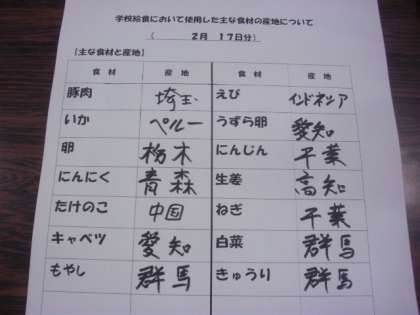 学校給食において使用した主な食材の産地について
( 2月 17日分)
【主な食材と産地】
食材 産地 食材 産地
豚肉 埼玉 えび インドネシア
いか ペルー うずら卵 愛知
卵 栃木 にんじん 千葉
にんにく 青森 生姜 高知
たけのこ 中国 ねぎ 千葉
キャベツ 愛知 白菜 群馬
もやし 群馬 きゅうり 群馬